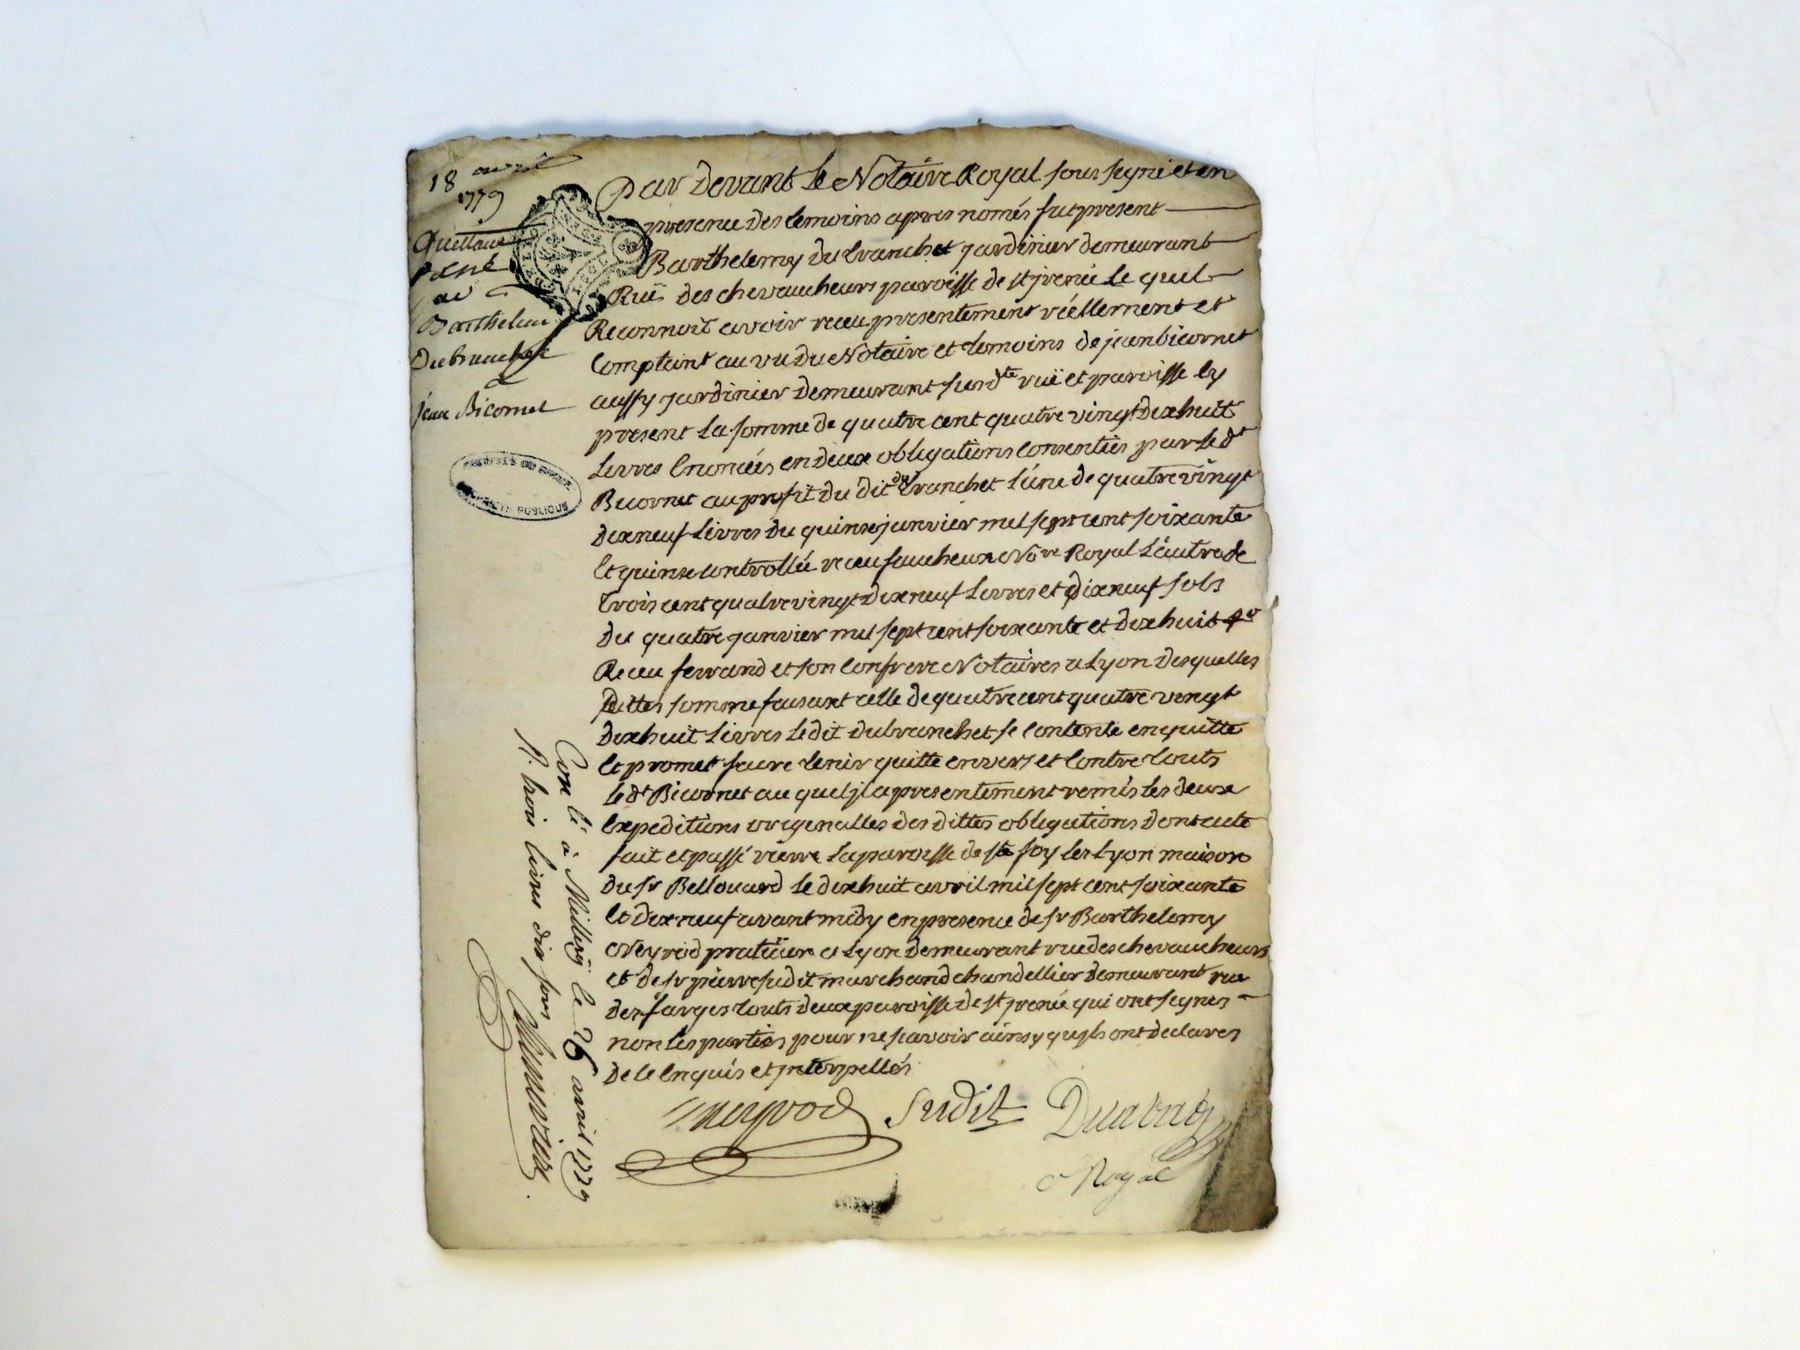 18 avril
1779
Quittance
passé
au
Barthelemi
Dutranchet
jean Bicornet
Par Devant Le Notaire Royal sous signé et en
presence des temoins apres només fut present
Barthelemy Dutranchet jardinier demeurant
Ruë des chevaucheurs paroisse de st jrenée le quel
Reconnoit avoir receu presentement réellement et
Comptant au vu du Notaire et temoins de jean bicornet
aussy jardinier demeurant sur dte ruë et paroisse Cy
present La somme de quatre cent quatre vingt Dixhuit
Livres Enoncées en deux obligations Consenties par le dt
Bicornet au profit du dit dutranchet L'une de quatre vingt
dixneuf Livres du quinse janvier mil sept cent soixante
Et quinse controllée receu faucheux Nore Royal L'autre de
trois cent quatre vingt dixneuf Livres et dixneuf sols
du quatre janvier mil sept cent soixante et dixhuit
Receu ferrand et son Confrere Notaires a Lyon desquelles
dittes somme faisant celle de quatre cent quatre vingt
dixhuit Livres Ledit dutranchet se Contente en quitte
Et promet faire tenir quitte envers et Contre touts
le dt Bicornet au quel jl a presentement remis les deux
Expeditions originalles des dittes obligations dont acte
fait et passé rierre La paroisse de ste foy les Lyon maison
du sr Bellouard le dixhuit avril mil sept cent soixante
Et dixneuf avant midy en presence de sr Barthelemy
Neyrod praticien a Lyon demeurant rue des chevaucheurs
et de sr pierre sudit marchand chandellier demeurant rue
des farges touts deux paroisse de st jrenée qui ont signes
non Les parties pour ne scavoir ainsy quils ont declares
de le Enquis et jnterpellés
Neyrod Sudit
Royal
Con lé à Millery le 26 avril 1779
R. trois livres dix sous
PUBLIQUE